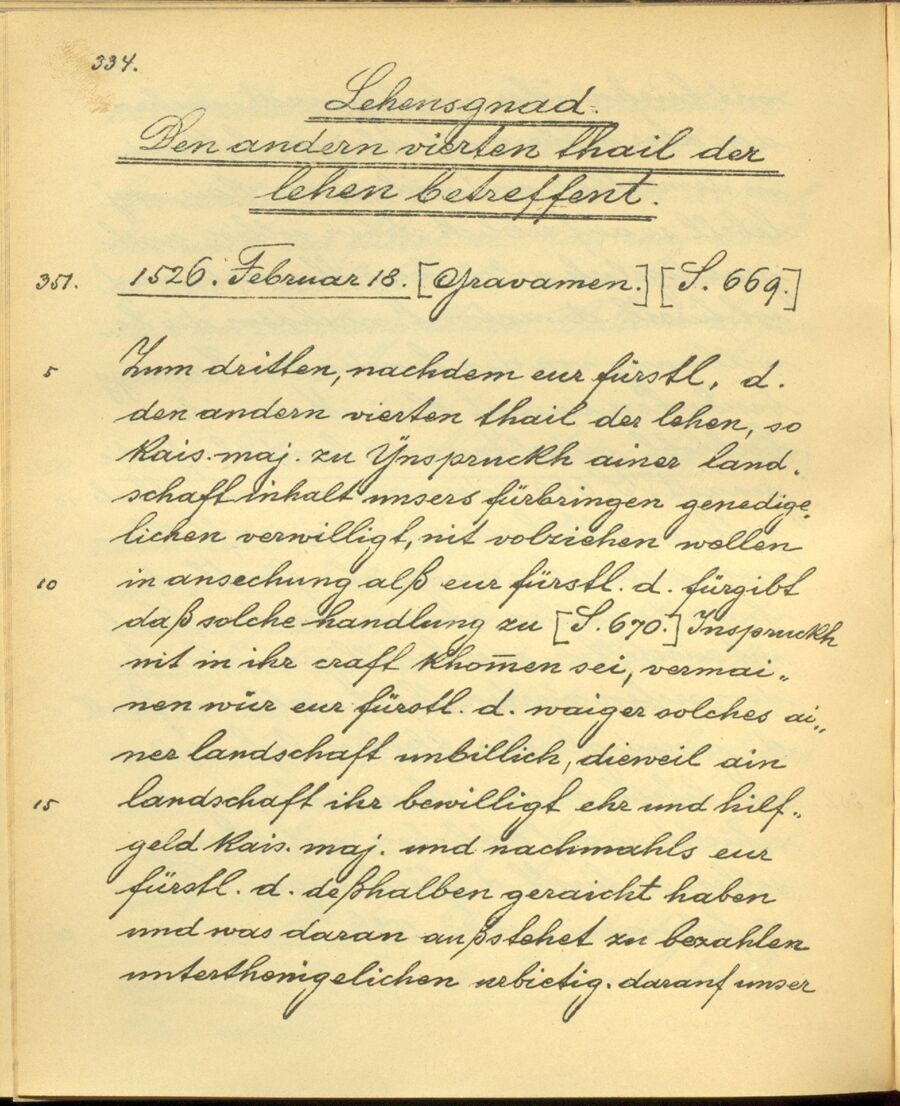 334.
Lehensgnad.
Den andern vierten thail der
lehen betreffent.
351. 1526. Februar 18. [Gravamen.] [S. 669.]
5 Zum dritten, nachdem eur fürstl. d.
den andern vierten thail der lehen, so
kais. maj. zu Ynspruckh ainer land„
schaft inhalt unsers fürbringen genedige„
lichen verwilligt, nit volziehen wellen
10 in ansechung alß eur fürstl. d. fürgibt
daß solche handlung zu [S. 670.] Inspruckh
nit in ihr craft khom̅en sei, vermai„
nen wür eur fürstl. d. waiger solches ai„
ner landschaft unbillich, dieweil ain
15 landschaft ihr bewilligt ehr und hilf„
geld kais. maj. und nachmahls eur
fürstl. d. deßhalben geraicht haben
und was daran außstehet zu bezahlen
unterthenigelichen urbietig. darauf unser